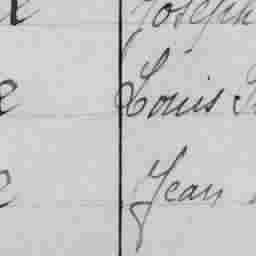 Joseph
Louis
Jean